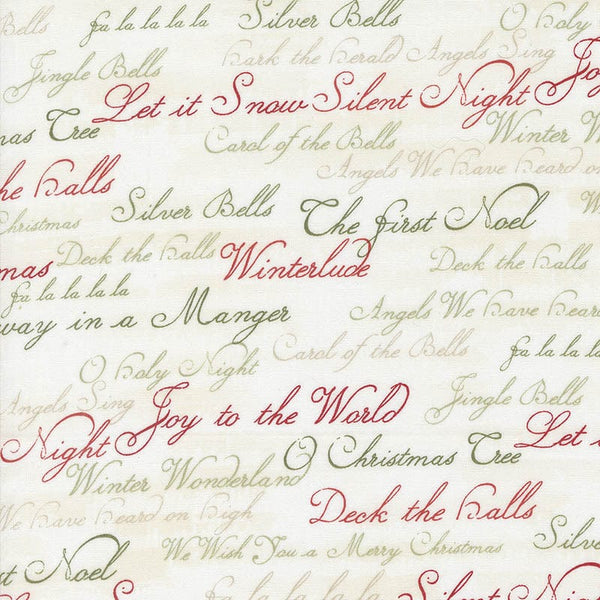 Bells fa la la la la Silver Bells O Holy
Hark the Herald Angels Sing
Jingle Bells Joy
Let it Snow Silent Night
mas Tree Carol of the Bells Winter Wo
Angels We have heard on
the halls
Silver Bells The First Noel
Christmas
Deck the halls Winterlude Deck the halls
mas
fa la la la la
way in a Manger Angels We Have heard
Carol of the Bells fa la la la
O Holy Night
Angels Sing Joy to the World Jingle Bells
Night O Christmas Tree Let i
Winter Wonderland
We have heard on high Deck the halls
We Wish You a Merry Christmas Silver Bells
st Noel
fa la la la la Silent Night